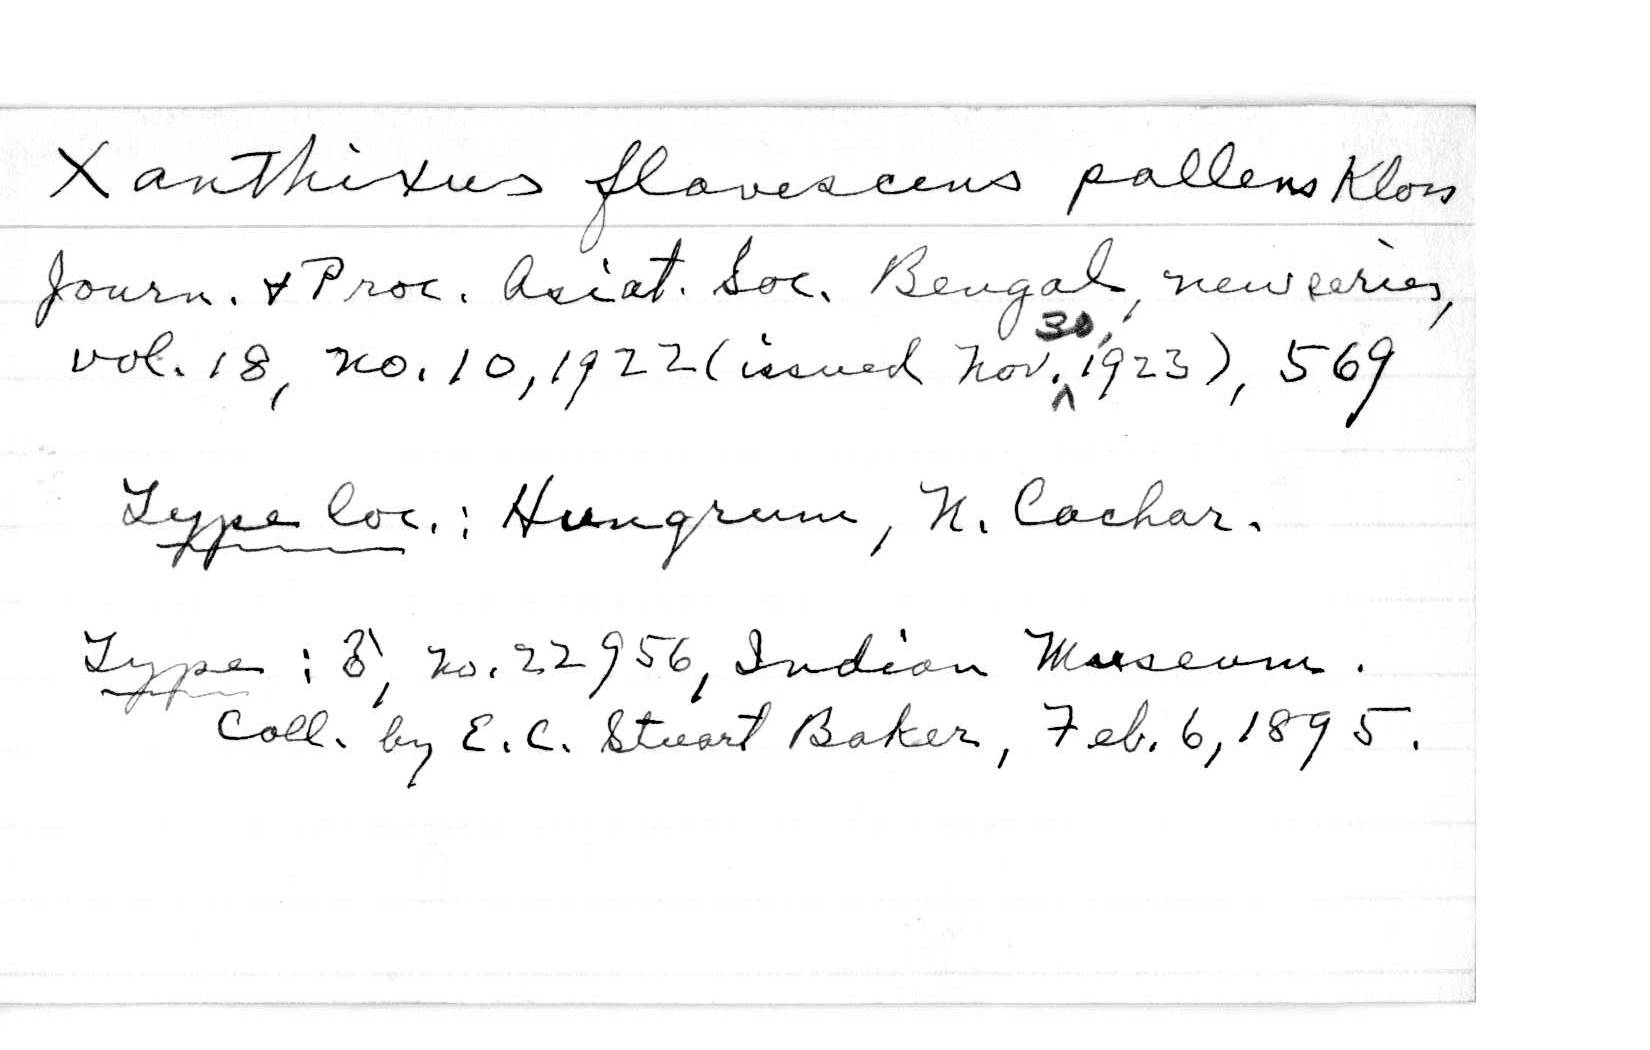 Xanthixus flavescens pallens Kloss
Journ. & Proc. Asiat. Soc. Bengal, new series,
vol. 18, no. 10, 1922 (issued Nov. 30, 1923), 569
Type loc.: Hungrum, N. Cachar.
Type: ♂, no. 22956, Indian Museum.
Coll. by E. C. Stuart Baker, Feb. 6, 1895.